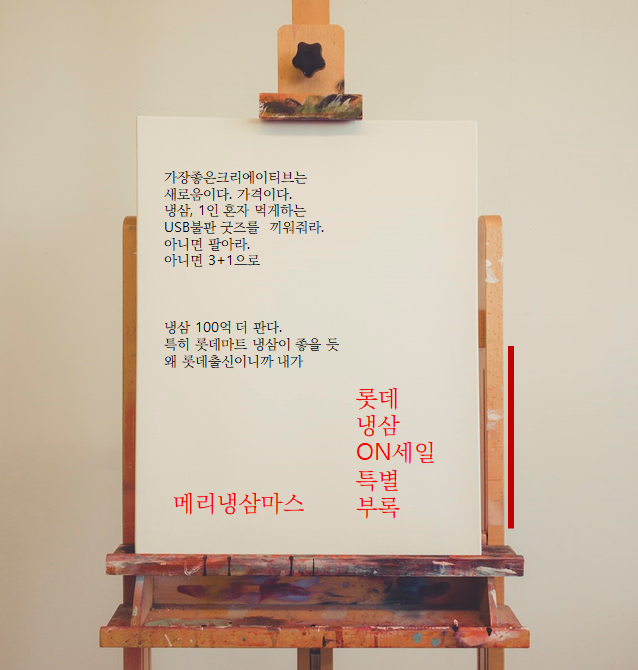 가장좋은크리에이티브는
새로움이다. 가격이다.
냉삼, 1인 혼자 먹게하는
USB불판 굿즈를 끼워줘라.
아니면 팔아라.
아니면 3+1으로
냉삼 100억 더 판다.
특히 롯데마트 냉삼이 좋을 듯
왜 롯데출신이니까 내가
롯데
냉삼
ON세일
특별
부록
메리냉삼마스